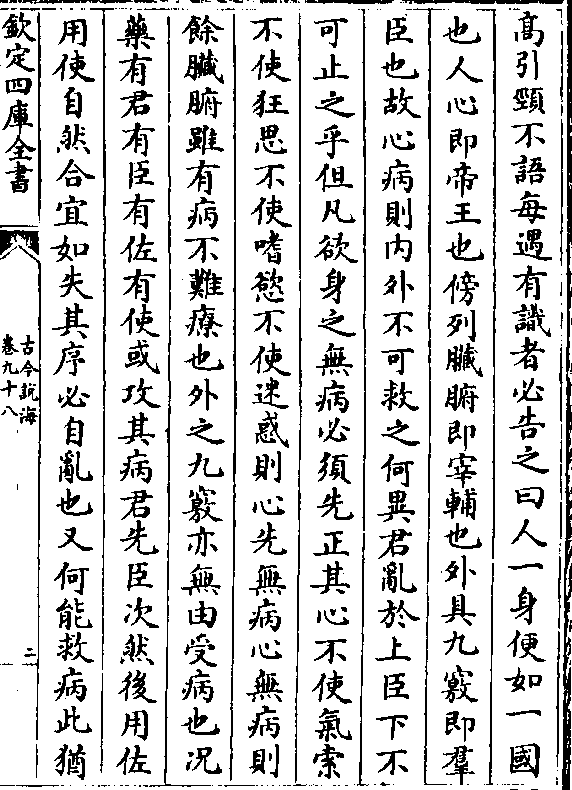 高引頸不語每遇有識者必告之曰人一身便如一國
也人心即帝王也傍列臟腑即宰輔也外具九竅即羣
臣也故心病則内外不可救之何異君亂於上臣下不
可止之乎但凡欲身之無病必須先正其心不使氣索
不使狂思不使嗜慾不使迷惑則心先無病心無病則
餘臟腑雖有病不難療也外之九竅亦無由受病也况
藥有君有臣有佐有使或攻其病君先臣次然後用佐
用使自然合宜如失其序必自亂也又何能救病此猶
欽定四庫全書
古今説海
卷九十八
二